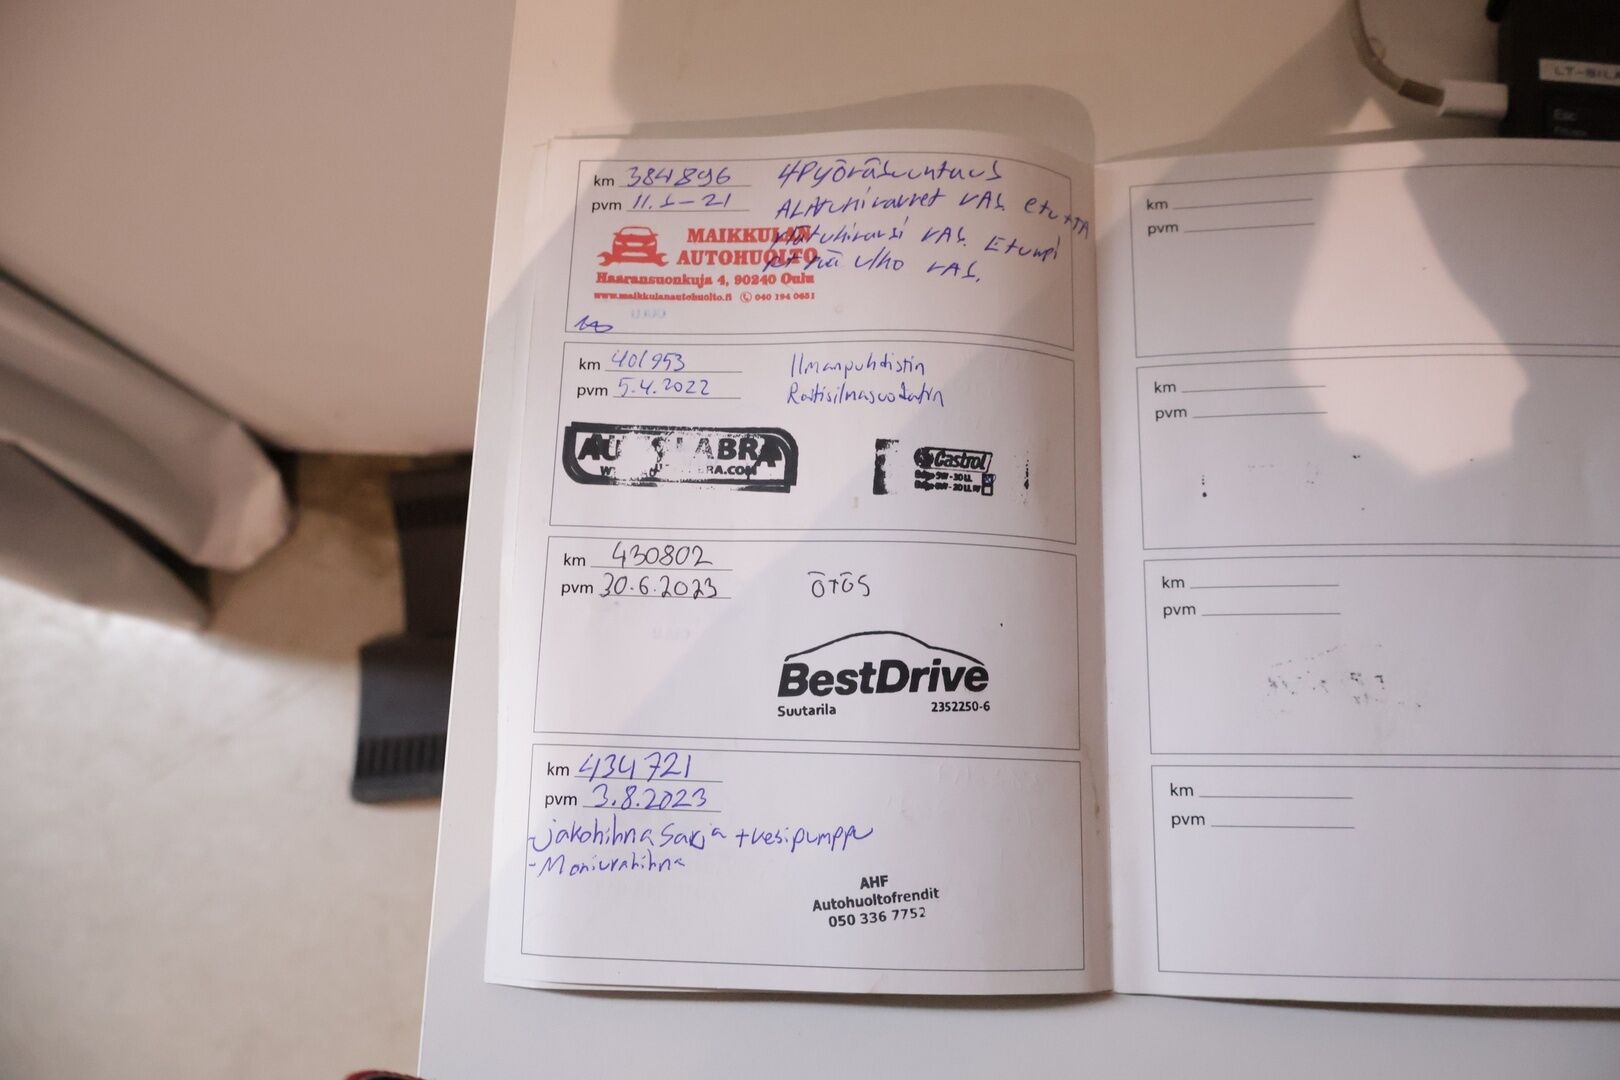 km 384896
pvm 11.1-21
4Pyöräsuuntaus
ALAtukivarret VAS. etu+TA
VAS. Etumpi
ulko VAS.
MAIKKULAN
AUTOHUOLTO
Haaransuonkuja 4, 90240 Oulu
www.maikkulanautohuolto.fi 040 194 0651
km 401953
pvm 5.4.2022
Ilmanpuhdistin
Raitisilmasuodatin
Castrol
km 430802
pvm 30.6.2023
ÖTÖS
BestDrive
Suutarila 2352250-6
km 434721
pvm 3.8.2023
-jakohihna sarja +vesipumppu
-Moniurahihna
AHF
Autohuoltofrendit
050 336 7752
km
pvm
km
pvm
km
pvm
km
pvm
Esc